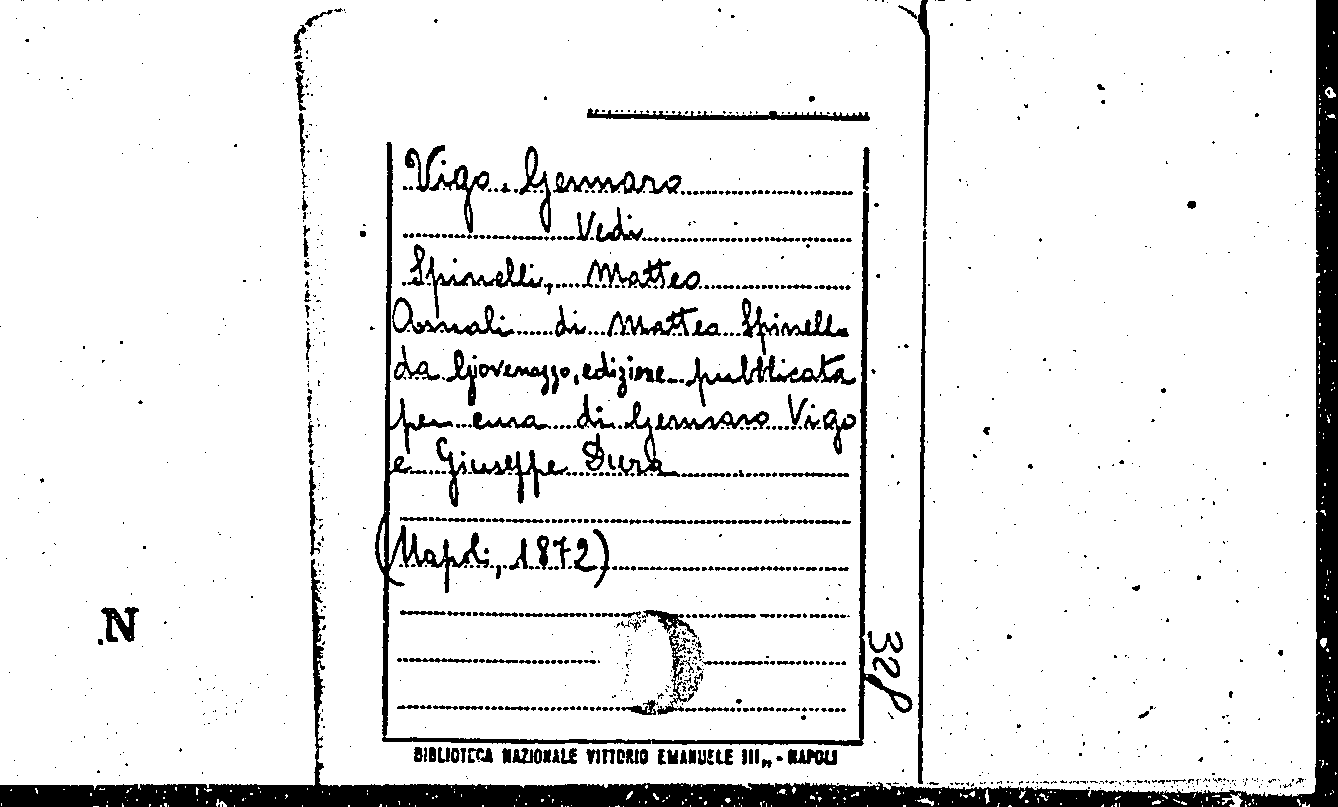 Vigo, Gennaro
Vedi
Spinelli, Matteo
Annali di Matteo Spinelli
da Giovenazzo, edizione pubblicata
per cura di Gennaro Vigo
e Giuseppe Dura
(Napoli, 1872)
328
N
BIBLIOTECA NAZIONALE VITTORIO EMANUELE III„ - NAPOLI